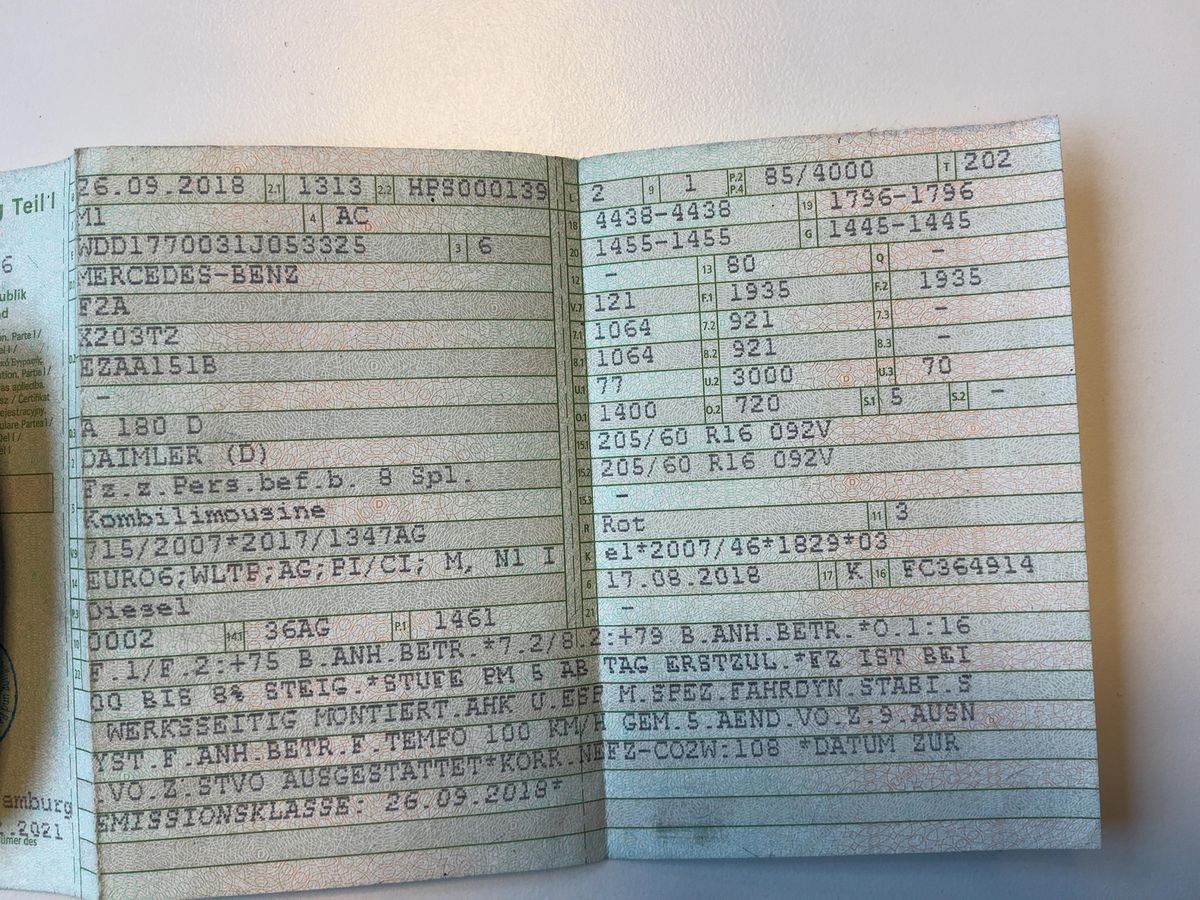 g Teil I
6
ublik
d
amburg
.2021
26.09.2018 2.1 1313 2.2 HPS000139
M1 4 AC
WDD1770031J053325 3 6
MERCEDES-BENZ
F2A
K203T2
EZAA151B
–
A 180 D
DAIMLER (D)
Fz.z.Pers.bef.b. 8 Spl.
Kombilimousine
715/2007*2017/1347AG
EURO6;WLTP;AG;PI/CI; M, N1 I
Diesel
0002 14.1 36AG P.1 1461
2 9 1 P.2 P.4 85/4000 T 202
18 4438-4438 19 1796-1796
20 1455-1455 G 1445-1445
12 – 13 80 Q –
V.7 121 F.1 1935 F.2 1935
7.1 1064 7.2 921 7.3 –
8.1 1064 8.2 921 8.3 –
U.1 77 U.2 3000 U.3 70
O.1 1400 O.2 720 S.1 5 S.2 –
15.1 205/60 R16 092V
15.2 205/60 R16 092V
15.3 –
R Rot 11 3
K e1*2007/46*1829*03
6 17.08.2018 17 K 16 FC364914
21 –
22 F.1/F.2:+75 B.ANH.BETR.*7.2/8.2:+79 B.ANH.BETR.*O.1:16
00 BIS 8% STEIG.*STUFE PM 5 AB TAG ERSTZUL.*FZ IST BEI
WERKSSEITIG MONTIERT.AHK U.ESP M.SPEZ.FAHRDYN.STABI.S
YST.F.ANH.BETR.F.TEMPO 100 KM/H GEM.5.AEND.VO.Z.9.AUSN
.VO.Z.STVO AUSGESTATTET*KORR.NEFZ-CO2W:108 *DATUM ZUR
EMISSIONSKLASSE: 26.09.2018*